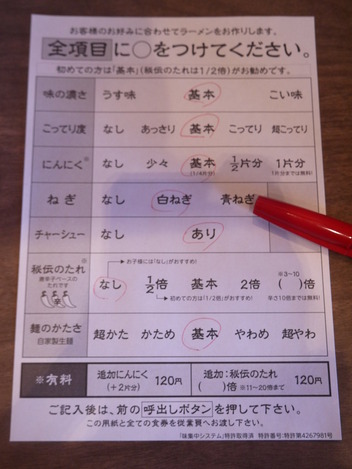 お客様のお好みに合わせてラーメンをお作りします。
全項目に○をつけてください。
初めての方は「基本」(秘伝のたれは1/2倍)がお勧めです。
味の濃さ うす味 基本 こい味
こってり度 なし あっさり 基本 こってり 超こってり
にんにく※ なし 少々 基本 1/2片分 1片分
(1/4片分) (1片分までは無料)
ねぎ なし 白ねぎ 青ねぎ
チャーシュー なし あり
お子様には「なし」がおすすめ!
秘伝のたれ※ なし 1/2倍 基本 2倍 ( )倍
※3~10
唐辛子ベースの
たれです
初めての方は「1/2倍」がおすすめ! 辛さ10倍までは無料!
麺のかたさ 超かた かため 基本 やわめ 超やわ
自家製生麺
※有料 追加にんにく 120円 追加:秘伝のたれ 120円
(+2片分) ( )倍 ※11~20倍まで
ご記入後は、前の呼出しボタンを押して下さい。
この用紙と全ての食券を従業員へお渡し下さい。
「味集中システム」特許取得済 特許番号:特許第4267981号